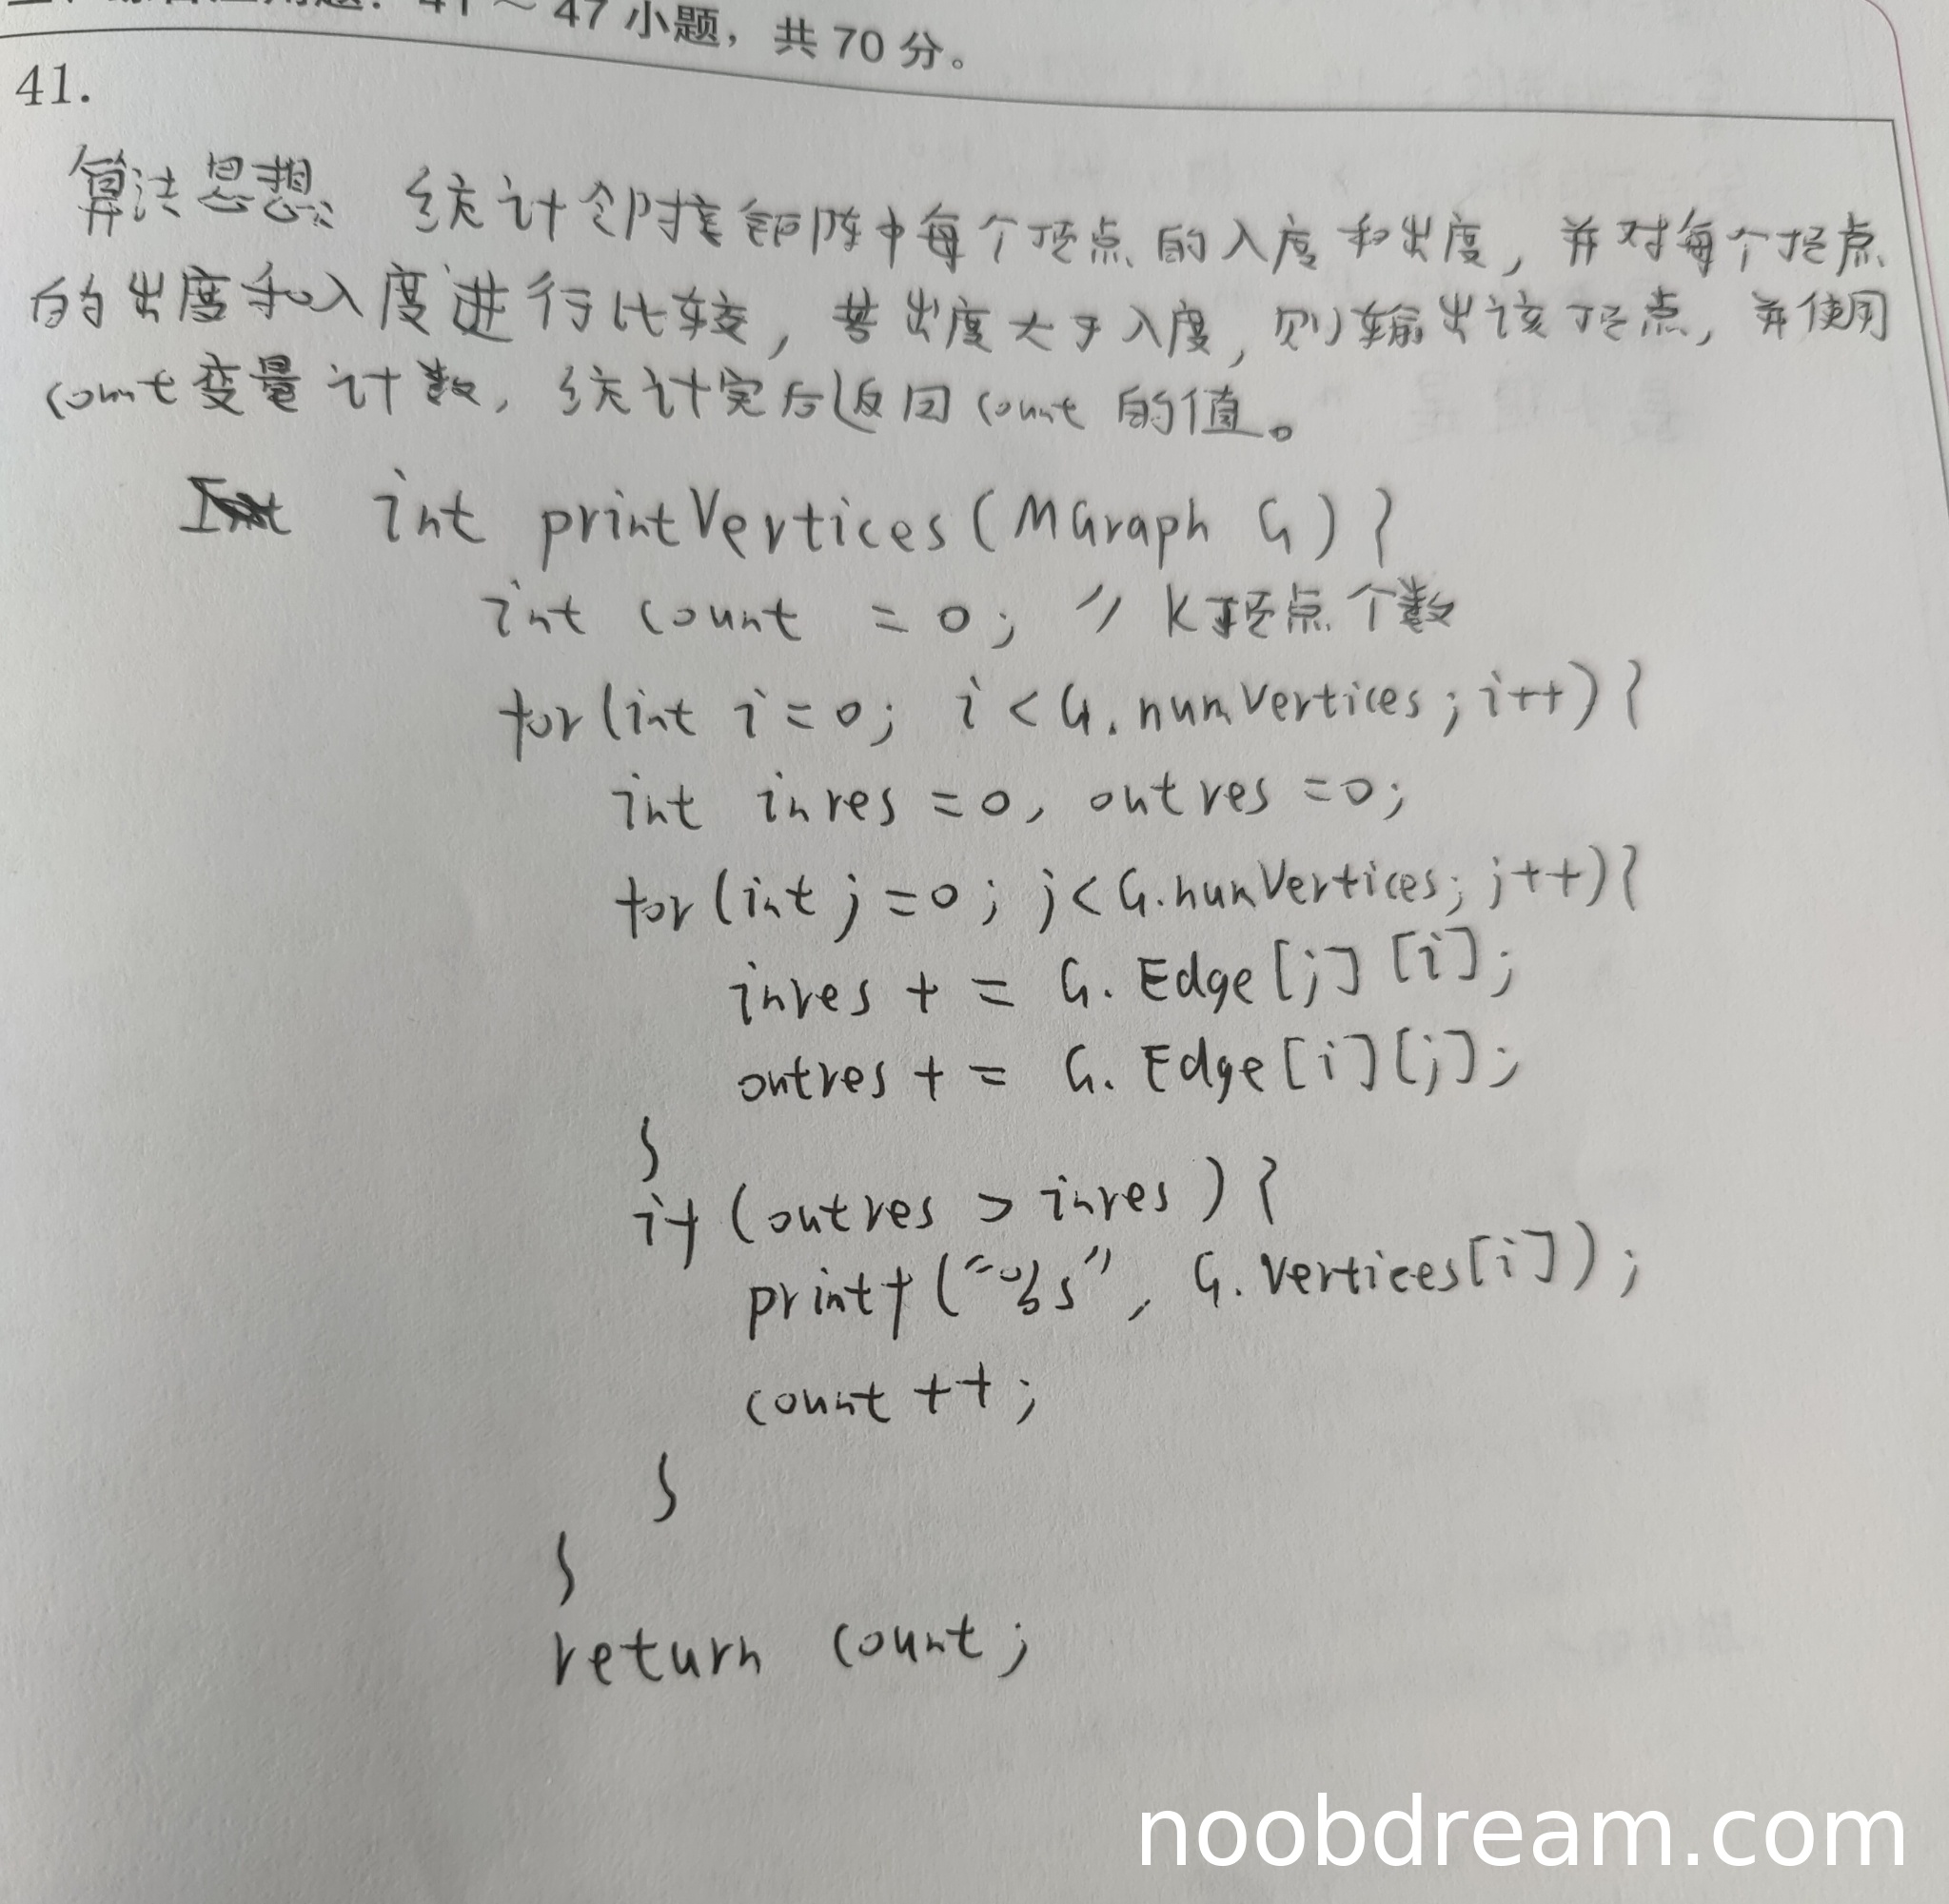 41～47 小题，共 70 分。
41.
算法思想：统计邻接矩阵中每个顶点的入度和出度，并对每个顶点
的出度和入度进行比较，若出度大于入度，则输出该顶点，并使用
count变量计数，统计完后返回count的值。
int printVertices(MGraph G){
int count = 0; // K顶点个数
for(int i=0; i<G.numVertices; i++){
int inres =0, outres =0;
for(int j=0; j<G.numVertices; j++){
inres += G.Edge[j][i];
outres += G.Edge[i][j];
}
if(outres > inres){
printf("%s", G.Vertices[i]);
count++;
}
}
return count;
noobdream.com